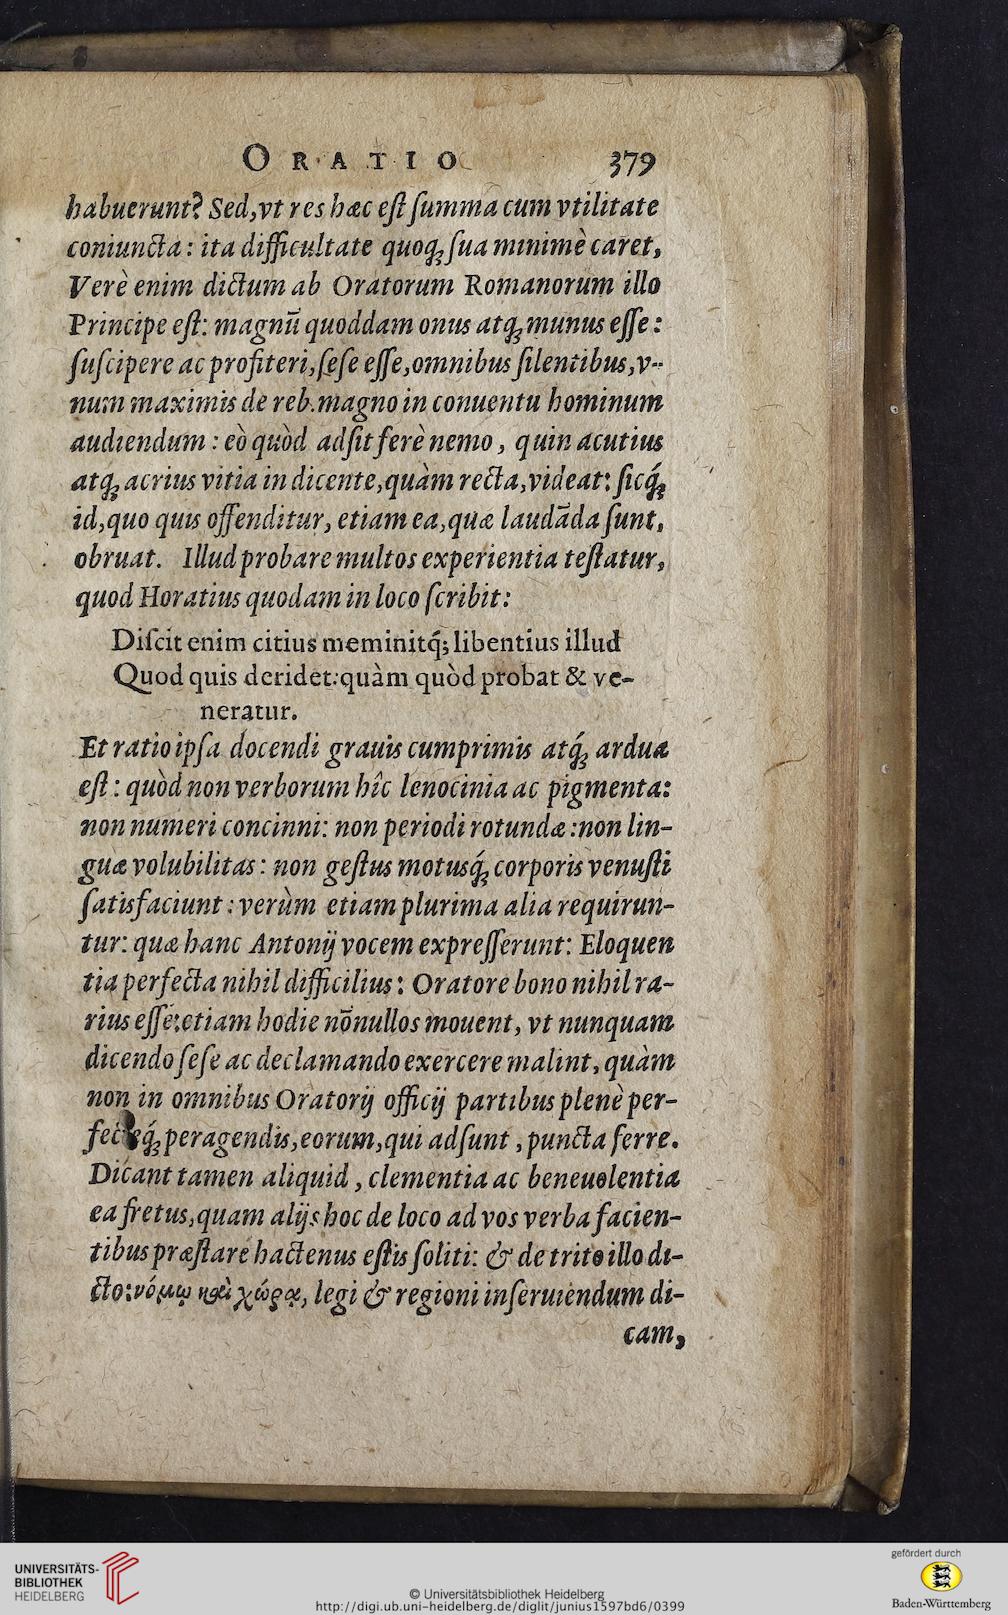 ORATIO 379
habuerunt? Sed, vt res hæc eſt ſumma cum vtilitate
coniuncta: ita difficultate quoq́ꝫ ſua minimè caret,
Verè enim dictum ab Oratorum Romanorum illo
Principe eſt: magnū quoddam onus atqꝫ munus eſſe:
ſuſcipere ac profiteri, ſeſe eſſe, omnibus ſilentibus, v-
num maximis de reb. magno in conuentu hominum
audiendum: eò quòd adſit ferè nemo, quin acutius
atqꝫ acrius vitia in dicente, quàm recta, videat: ſicq́ꝫ
id, quo quis offenditur, etiam ea, quæ laudāda ſunt,
obruat. Illud probare multos experientia teſtatur,
quod Horatius quodam in loco ſcribit:
Diſcit enim citius meminitq́; libentius illud
Quod quis deridet: quàm quòd probat & ve-
neratur.
Et ratio ipſa docendi grauis cumprimis atq́ꝫ ardua
eſt: quòd non verborum hîc lenocinia ac pigmenta:
non numeri concinni: non periodi rotundæ: non lin-
guæ volubilitas: non geſtus motusq́ꝫ corporis venuſti
ſatisfaciunt: verùm etiam plurima alia requirun-
tur: quæ hanc Antonij vocem expreſſerunt: Eloquen
tia perfecta nihil difficilius: Oratore bono nihil ra-
rius eſſe: etiam hodie nōnullos mouent, vt nunquam
dicendo ſeſe ac declamando exercere malint, quàm
non in omnibus Oratorij officij partibus plenè per-
fecteq́ꝫ peragendis, eorum, qui adſunt, puncta ferre.
Dicant tamen aliquid, clementia ac beneuolentia
ea fretus, quam alijs hoc de loco ad vos verba facien-
tibus præſtare hactenus eſtis ſoliti: & de trito illo di-
cto: νόμῳ καὶ χώρᾳ, legi & regioni inſeruiendum di-
cam,
UNIVERSITÄTS-
BIBLIOTHEK
HEIDELBERG
© Universitätsbibliothek Heidelberg
http://digi.ub.uni-heidelberg.de/diglit/junius1597bd6/0399
gefördert durch
Baden-Württemberg